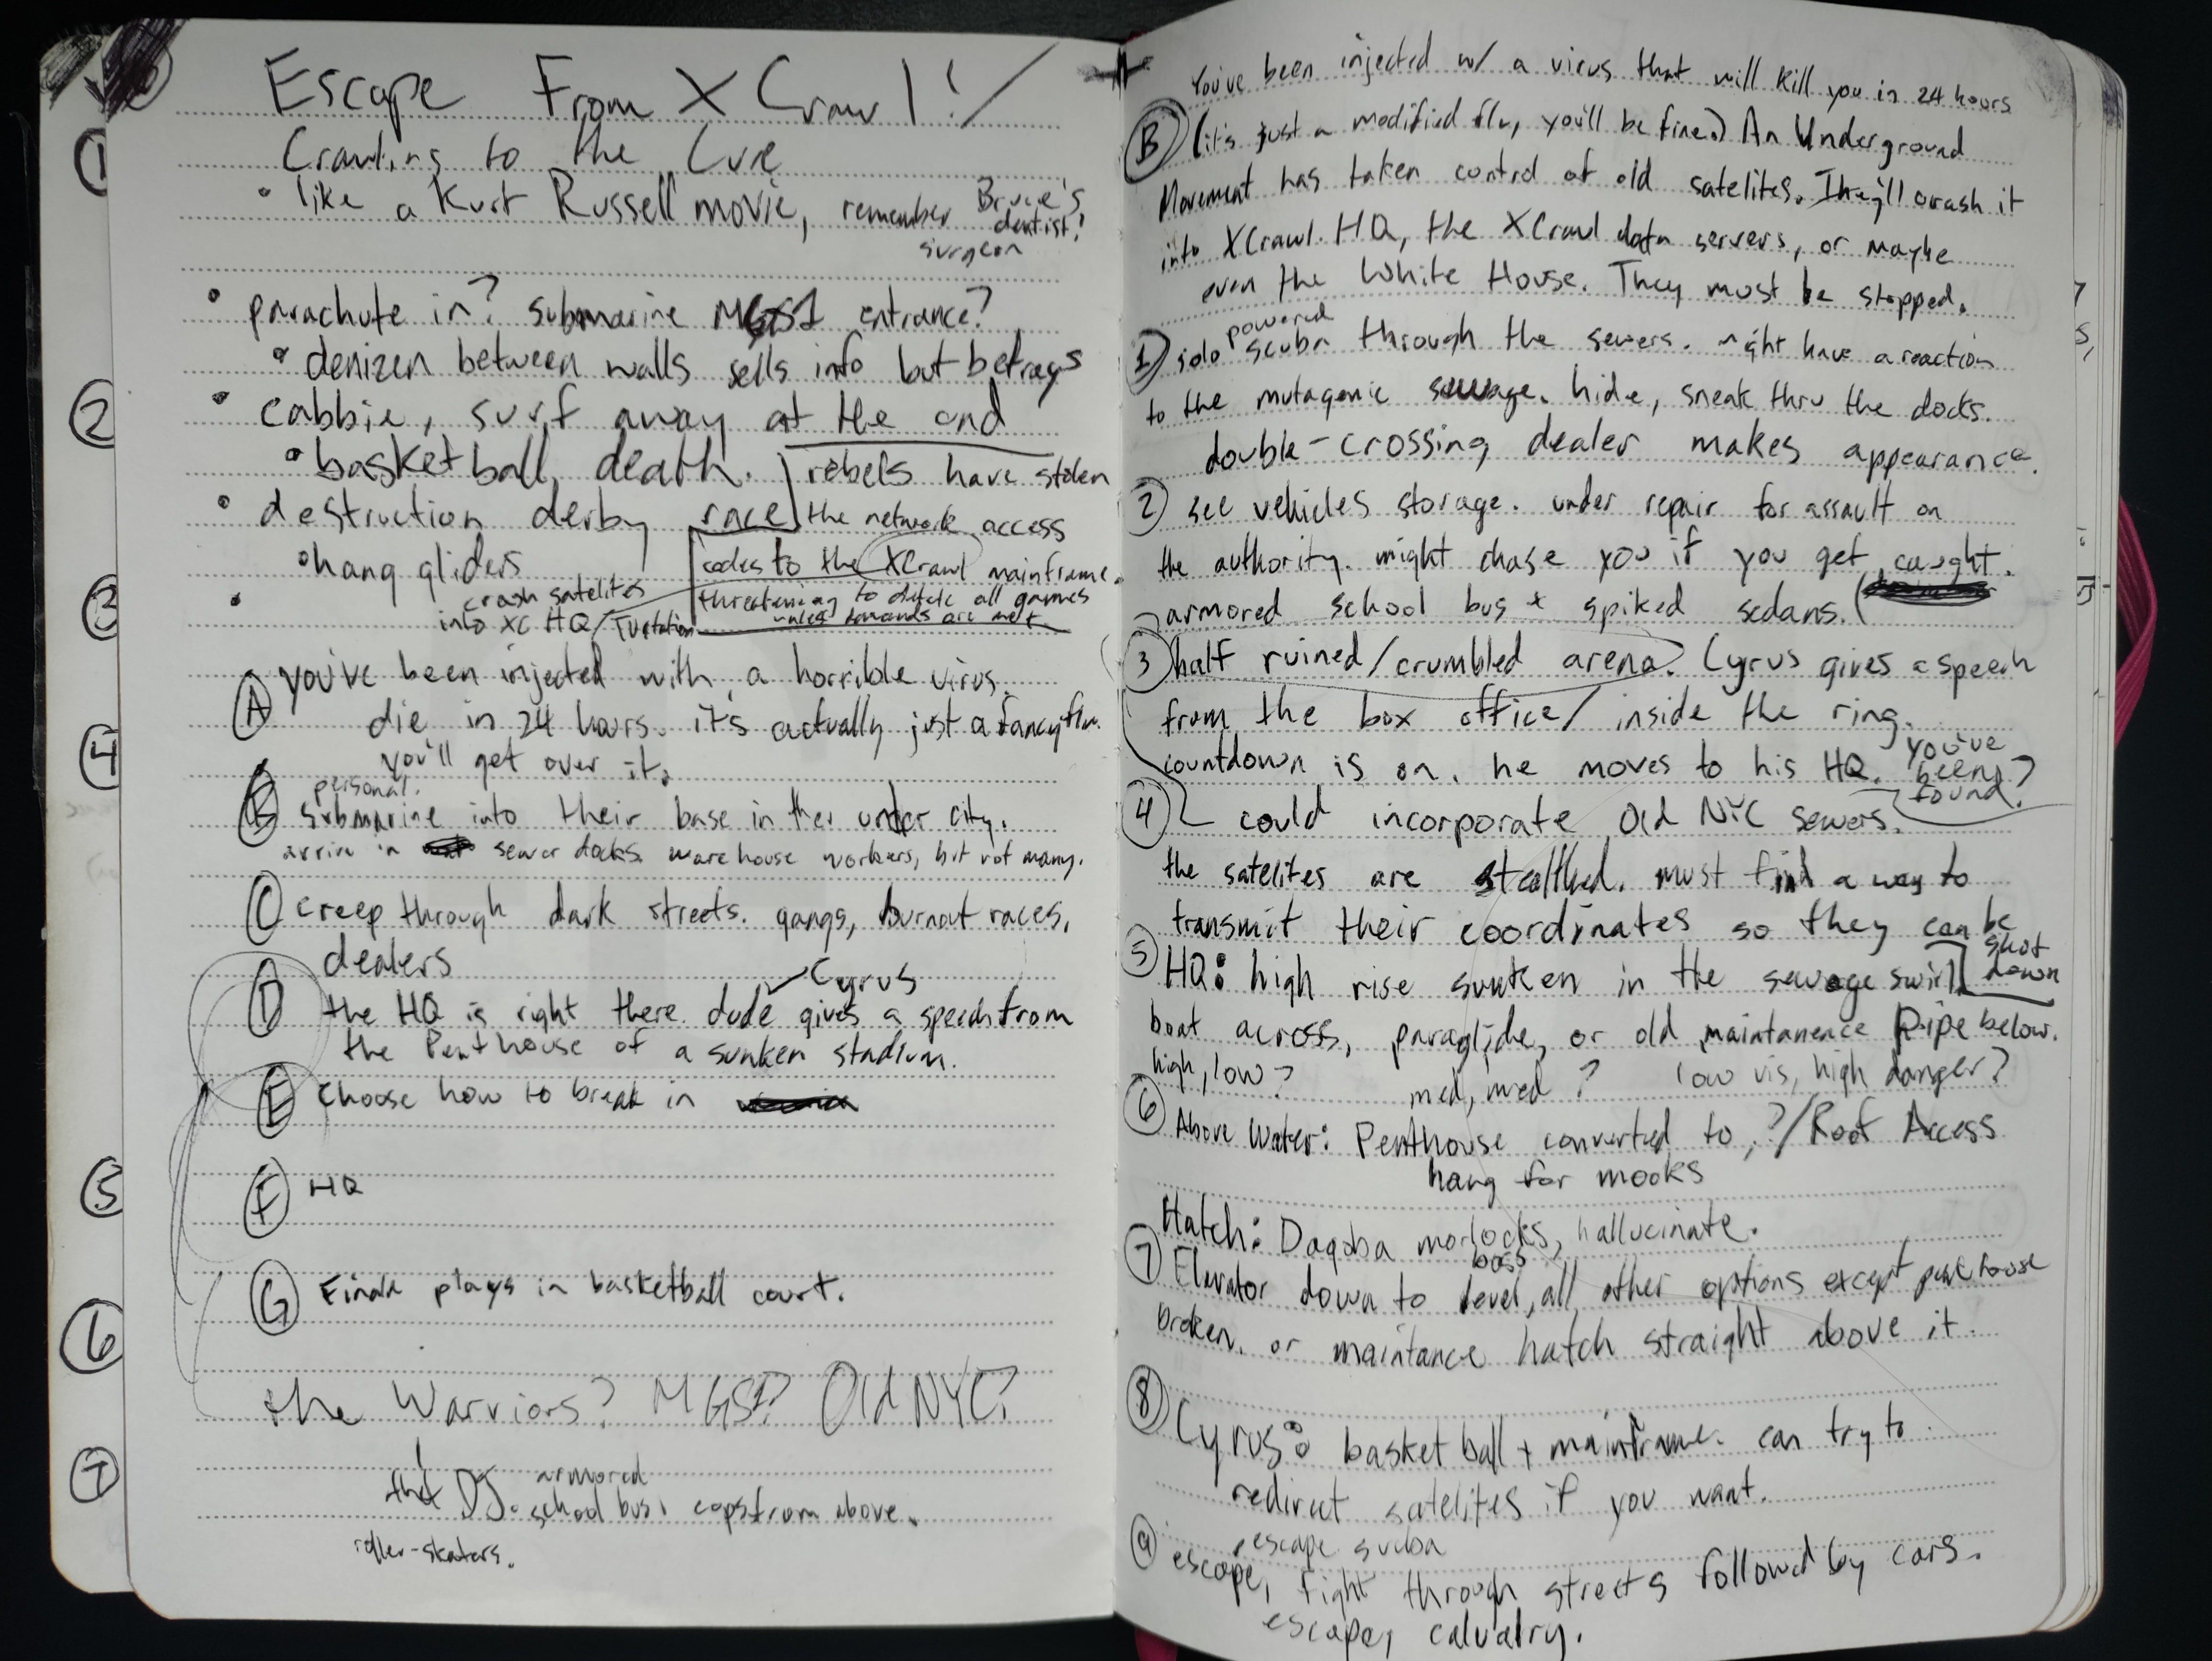 Escape From X Crawl!/
Crawling to the Cure
• like a Kurt Russell movie, remember Bruce's
dentist!
surgeon
• parachute in? submarine MGS1 entrance?
• denizen between walls sells info but betrays
• cabbie, surf away at the end
• basketball death.
• destruction derby race
• hang gliders
rebels have stolen
the network access
codes to the XCrawl mainframe.
threatening to delete all games
unless demands are met
crash satelites
into XC HQ/
A you've been injected with a horrible virus.
die in 24 hours. it's actually just a fancy flu.
you'll get over it.
B personal
submarine into their base in the under city.
arrive in sewer docks. warehouse workers, but not many.
C creep through dark streets. gangs, burnout races,
dealers
Cyrus
D the HQ is right there. dude gives a speech from
the Penthouse of a sunken stadium.
E Choose how to break in
F HQ
G Finale plays in basketball court.
the Warriors? MGS1? Old NYC?
that DJ. armored
school bus. cops from above.
roller-skaters.
1
2
3
4
5
6
7
You've been injected w/ a virus that will kill you in 24 hours
B (it's just a modified flu, you'll be fine.) An Underground
Movement has taken control of old satelites. They'll crash it
into XCrawl HQ, the XCrawl data servers, or maybe
even the White House. They must be stopped.
powered
1 solo scuba through the sewers. might have a reaction
to the mutagenic sewage. hide, sneak thru the docks.
double-crossing dealer makes appearance.
2 see vehicles storage. under repair for assault on
the authority. might chase you if you get caught.
armored school bus + spiked sedans. (
3 half ruined/crumbled arena. Cyrus gives a speech
from the box office/ inside the ring.
countdown is on. he moves to his HQ. you've
been
found?
4 could incorporate Old NYC sewers.
the satelites are stealthed. must find a way to
transmit their coordinates so they can be
shot
down
5 HQ: high rise sunken in the sewage swirl
boat across, paraglide, or old maintanence pipe below.
high, low? med, med? low vis, high danger?
6 Above Water: Penthouse converted to ?/Roof Access
hang for mooks
Hatch: Dagoba morlocks, hallucinate.
boss
7 Elevator down to level, all other options except penthouse
broken. or maintance hatch straight above it.
8 Cyrus: basketball + mainframe. can try to
redirect satelites if you want.
escape scuba
9 escape, fight through streets followed by cars.
escape, calvalry.